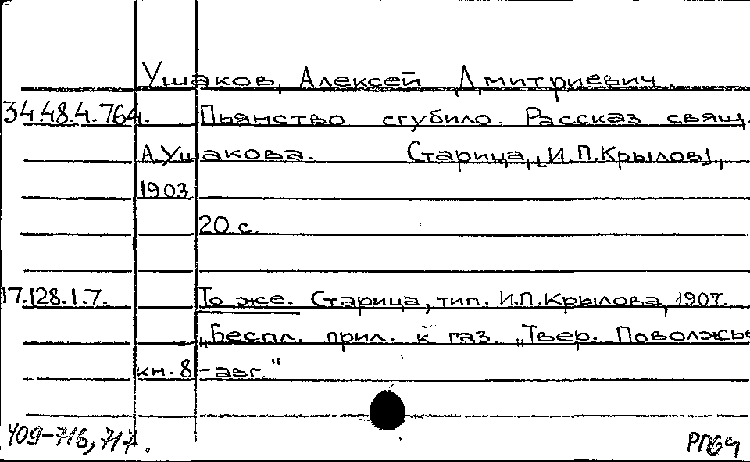 Ушаков, Алексей Дмитриевич
34.48.4.764. Пьянство сгубило. Рассказ свящ.
А.Ушакова. Старица, И.П.Крылов,
1903
20 с.
17.128.1.7. То же. Старица, тип. И.П.Крылова, 1907.
„Беспл. прил. к газ. „Твер. Поволжье
кн. 8 - авг."
409-716, 717.